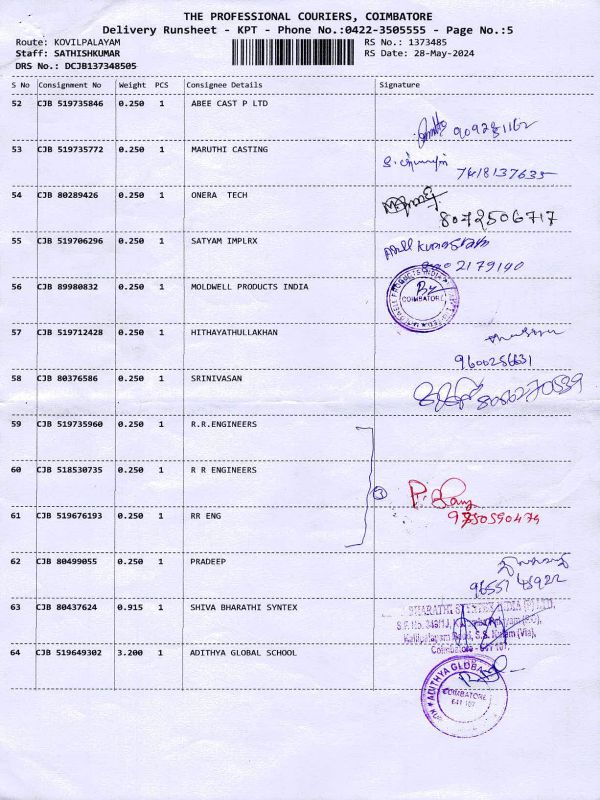 THE PROFESSIONAL COURIERS, COIMBATORE
Delivery Runsheet - KPT - Phone No.:0422-3505555 - Page No.:5
Route: KOVILPALAYAM
RS No.: 1373485
Staff: SATHISHKUMAR
RS Date: 28-May-2024
DRS No.: DCJB137348505
S No Consignment No Weight PCS Consignee Details Signature
52 CJB 519735846 0.250 1 ABEE CAST P LTD
53 CJB 519735772 0.250 1 MARUTHI CASTING
7418137635
54 CJB 80289426 0.250 1 ONERA TECH
8072506717
55 CJB 519706296 0.250 1 SATYAM IMPLRX
56 CJB 89980832 0.250 1 MOLDWELL PRODUCTS INDIA
COIMBATORE
57 CJB 519712428 0.250 1 HITHAYATHULLAKHAN
9600256631
58 CJB 80376586 0.250 1 SRINIVASAN
59 CJB 519735960 0.250 1 R.R.ENGINEERS
60 CJB 518530735 0.250 1 R R ENGINEERS
61 CJB 519676193 0.250 1 RR ENG
62 CJB 80499055 0.250 1 PRADEEP
63 CJB 80437624 0.915 1 SHIVA BHARATHI SYNTEX
Coimbatore - 641 107.
64 CJB 519649302 3.200 1 ADITHYA GLOBAL SCHOOL
ADITHYA GLOBAL
COIMBATORE
641 107